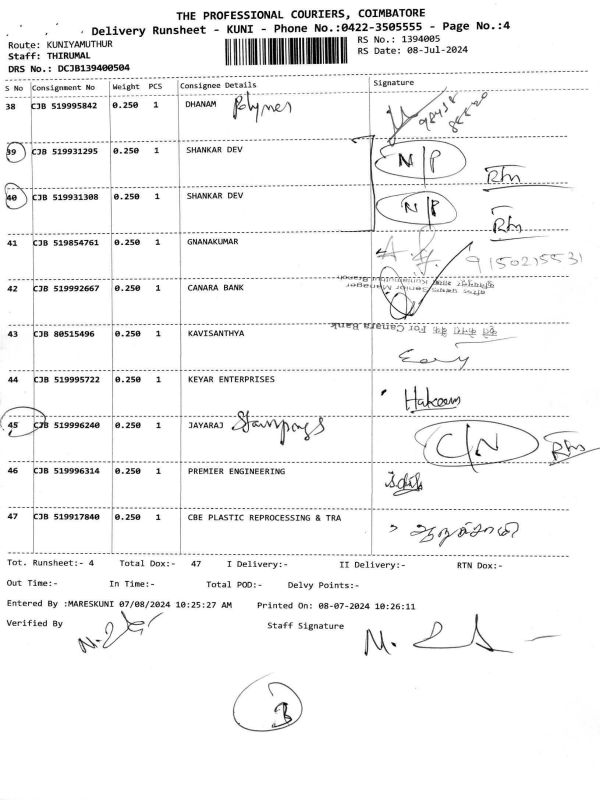 THE PROFESSIONAL COURIERS, COIMBATORE
Delivery Runsheet - KUNI - Phone No.:0422-3505555 - Page No.:4
Route: KUNIYAMUTHUR
RS No.: 1394005
Staff: THIRUMAL
RS Date: 08-Jul-2024
DRS No.: DCJB139400504
S No Consignment No Weight PCS Consignee Details Signature
38 CJB 519995842 0.250 1 DHANAM Polymer
39 CJB 519931295 0.250 1 SHANKAR DEV N/P Rtn
40 CJB 519931308 0.250 1 SHANKAR DEV N/P Rtn
41 CJB 519854761 0.250 1 GNANAKUMAR 9150215531
42 CJB 519992667 0.250 1 CANARA BANK
Senior Manager
For Canara Bank
43 CJB 80515496 0.250 1 KAVISANTHYA
44 CJB 519995722 0.250 1 KEYAR ENTERPRISES Hakeem
45 CJB 519996240 0.250 1 JAYARAJ Stampings C/N Rtn
46 CJB 519996314 0.250 1 PREMIER ENGINEERING
47 CJB 519917840 0.250 1 CBE PLASTIC REPROCESSING & TRA
Tot. Runsheet:- 4 Total Dox:- 47 I Delivery:- II Delivery:- RTN Dox:-
Out Time:- In Time:- Total POD:- Delvy Points:-
Entered By :MARESKUNI 07/08/2024 10:25:27 AM Printed On: 08-07-2024 10:26:11
Verified By Staff Signature
3